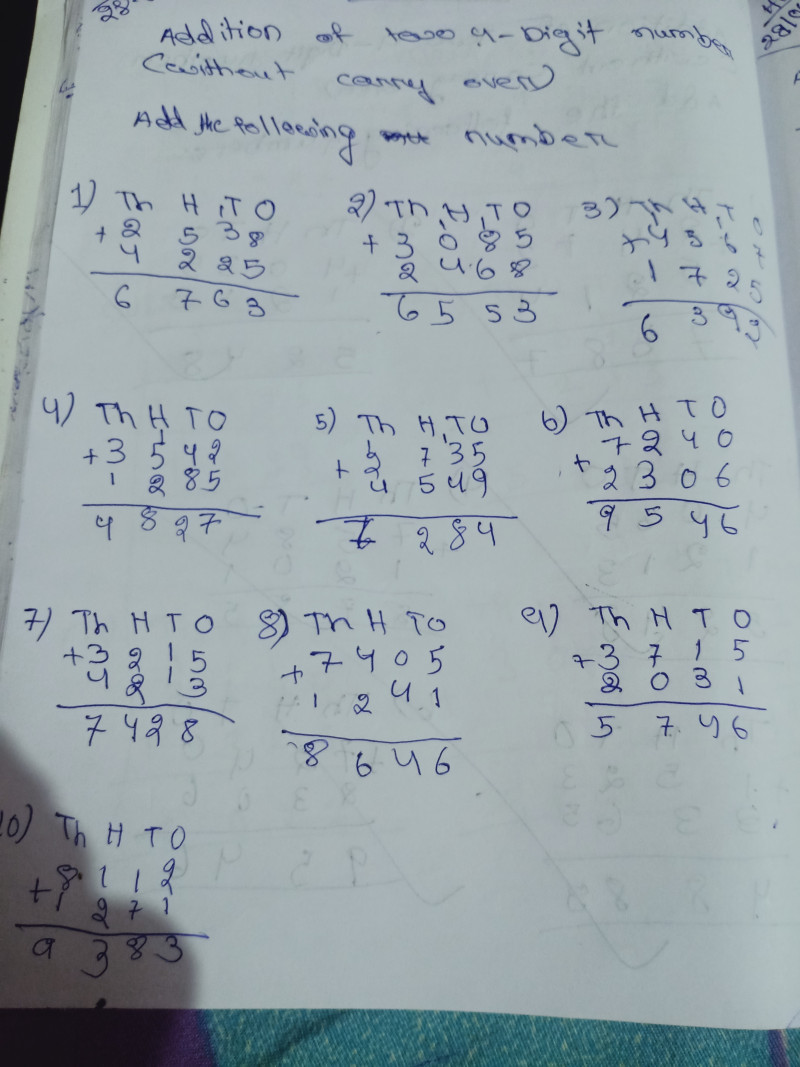 28
Addition of two 4-Digit number
(without carry over)
Add the following number
1) Th H T O
+ 2 5 3 8
4 2 2 5
6 7 6 3
2) Th H T O
+ 3 0 8 5
2 4 6 8
6 5 5 3
3) Th H T O
+ 4 5 6 7
1 7 2 5
6 3 9 2
4) Th H T O
+ 3 5 4 2
1 2 8 5
4 8 2 7
5) Th H T O
+ 2 7 3 5
4 5 4 9
7 2 8 4
6) Th H T O
+ 7 2 4 0
2 3 0 6
9 5 4 6
7) Th H T O
+ 3 2 1 5
4 2 1 3
7 4 2 8
8) Th H T O
+ 7 4 0 5
1 2 4 1
8 6 4 6
9) Th H T O
+ 3 7 1 5
2 0 3 1
5 7 4 6
10) Th H T O
+ 8 1 1 2
1 2 7 1
9 3 8 3